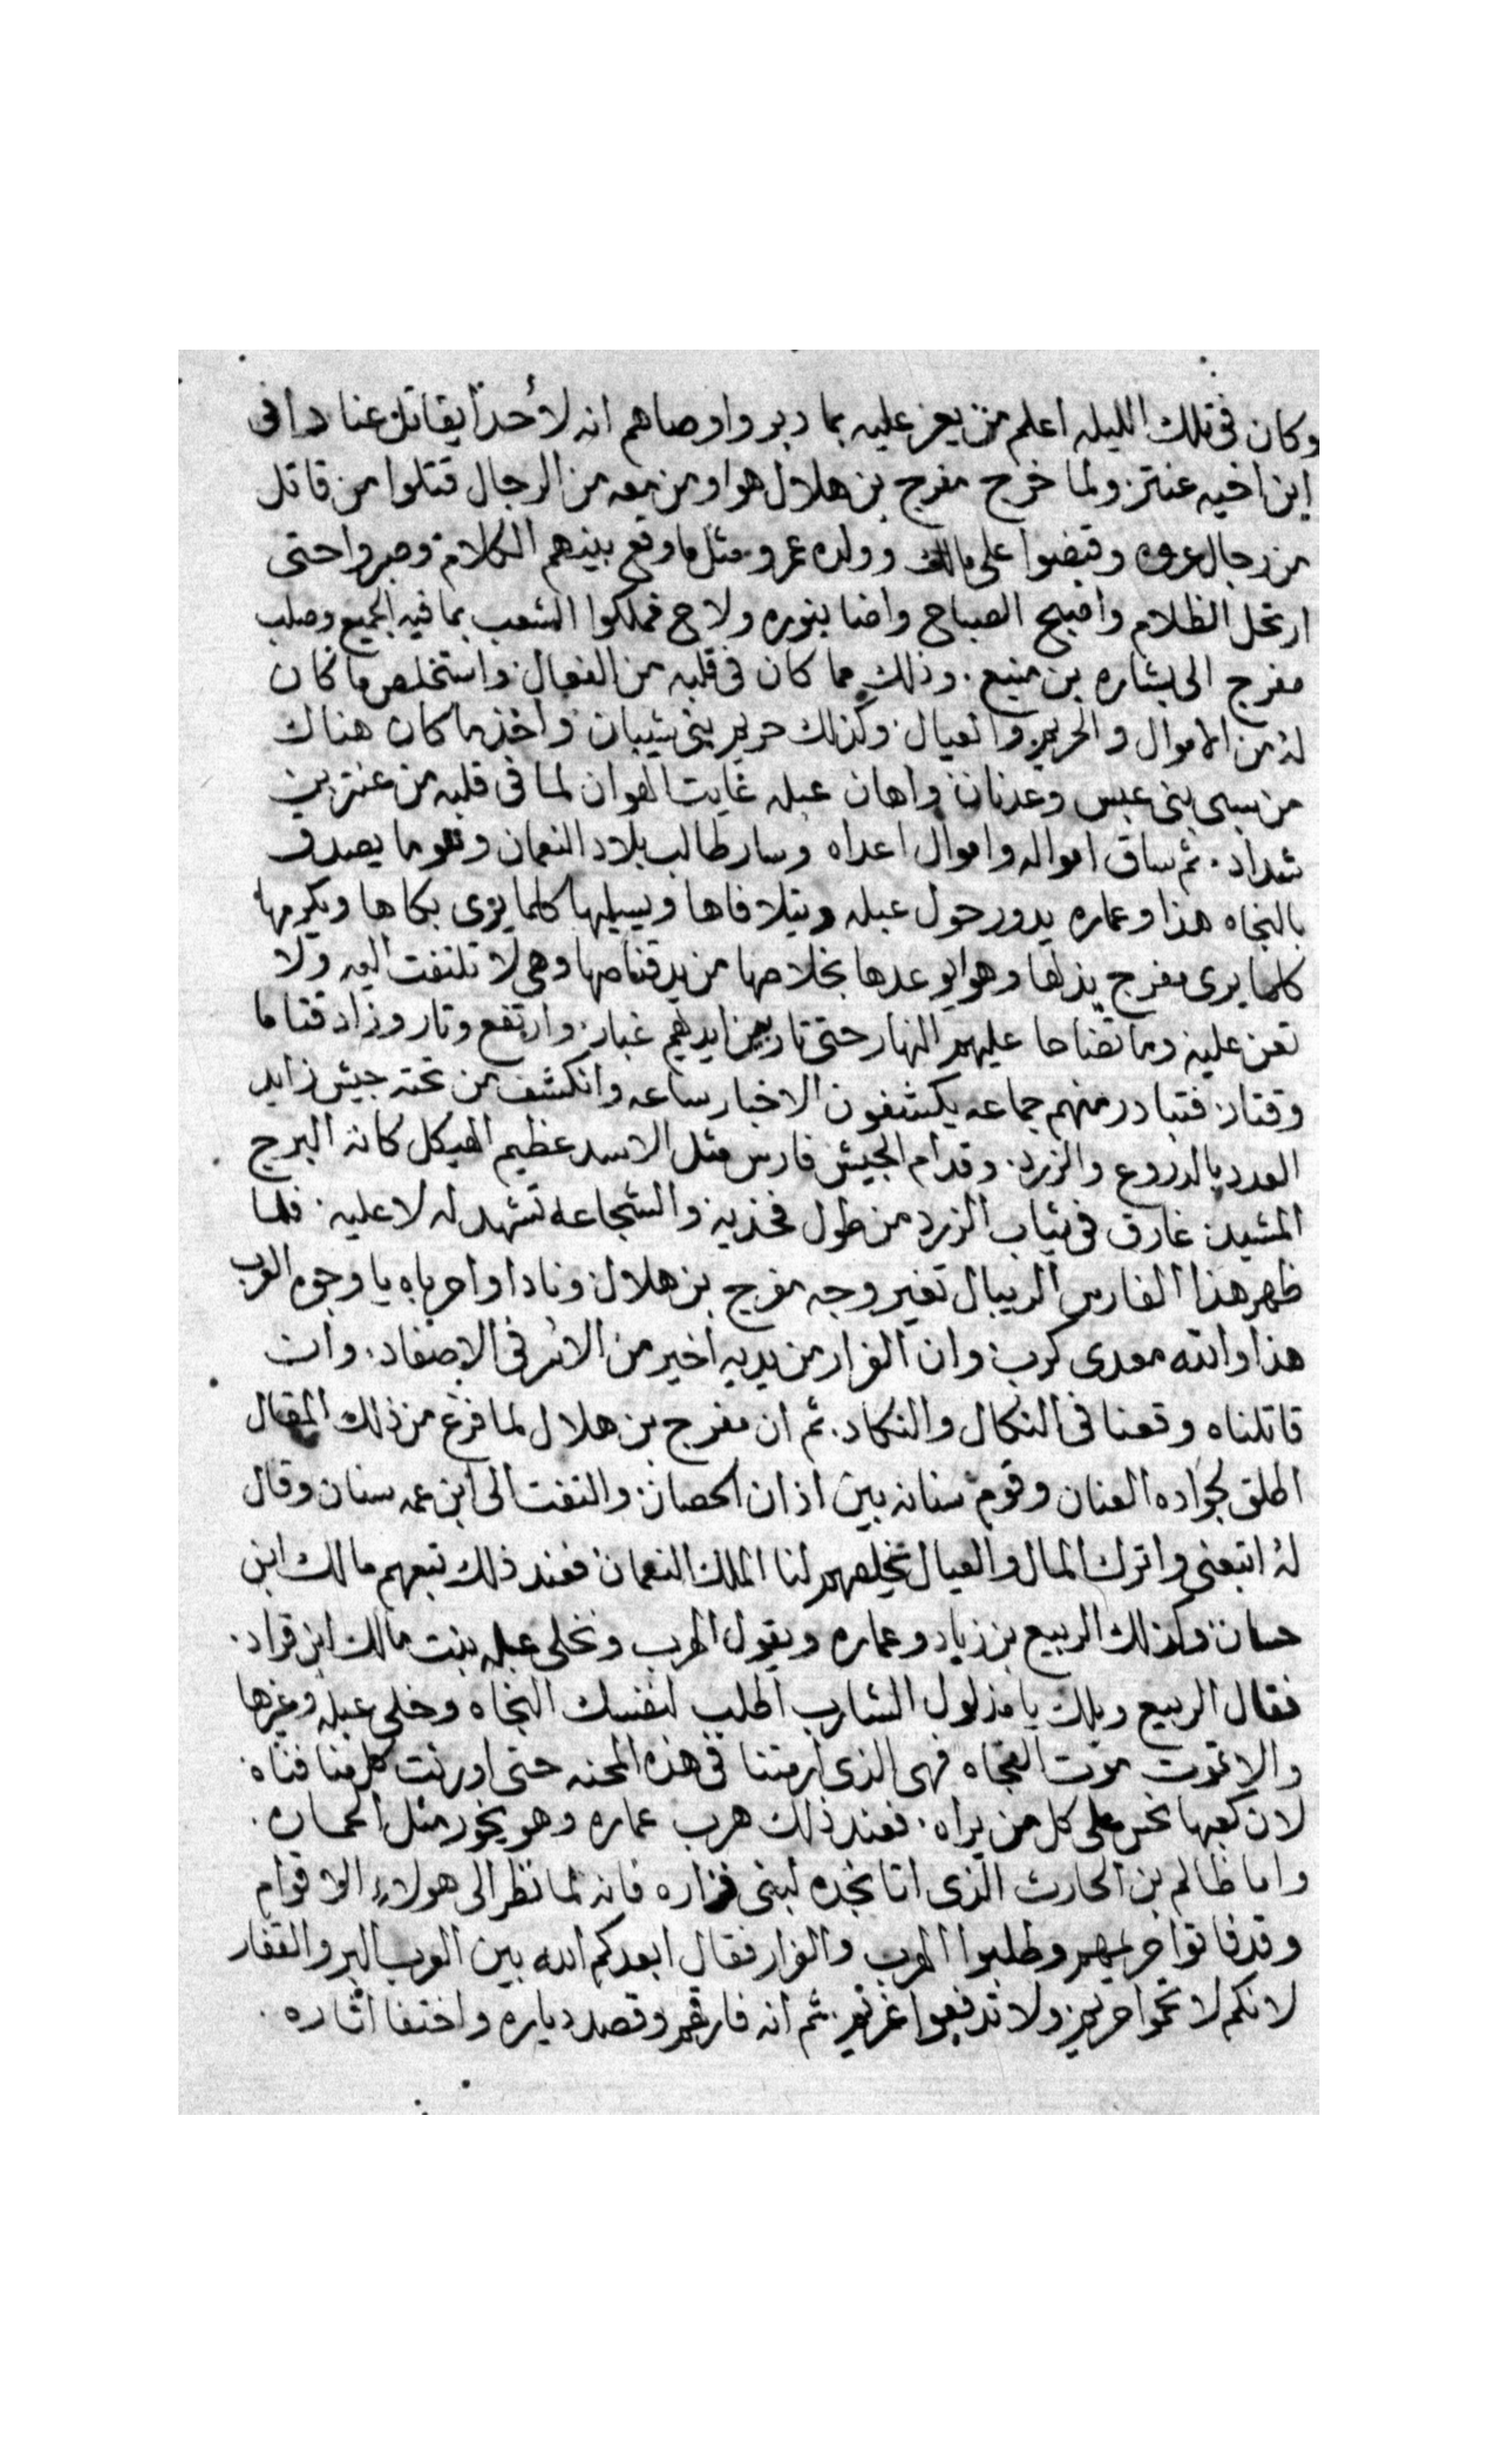 وكان في تلك الليله اعلم من يعز عليه بما دبر واوصاهم انه لا أحداً يقاتل عنا
ابن اخيه عنتر ولما خرج مفرج بن هلال هوا ومن معه من الرجال قتلوا من قاتل
من رجال عروه وقبضوا على مالك وولده عمرو مثل ما وقع بينهم الكلام وصبروا حتى
ارتحل الظلام واصبح الصباح واضا بنوره ولاح فملكوا الشعب بما فيه الجميع وصلب
مفرج الى بشاره بن منيع. وذلك مما كان في قلبه من الفعال واستخلص ما كان
له من الاموال والحريم والعيال وكذلك حريم بني شيبان واخذ ما كان هناك
من سبي بني عبس وعدنان واهان عبله غايت الهوان لما في قلبه من عنتر بن
شداد. ثم ساق امواله واموال اعداه وسار طالب بلاد النعمان وهو ما يصدق
بالنجاه هذا وعماره يدور حول عبله ويتلافاها ويسليها كلما يرى بكاها ويكرمها
كلما يرى مفرج يذلها وهوا يوعدها بخلاصها من يد قناصها وهي لا تلتفت اليه ولا
تعن عليه وما تضاحا عليهم النهار حتى تار بين ايديهم غبار وارتفع وتار وزاد قتاما
وقتار فتبادر منهم جماعه يكشفون الاخبار ساعه وانكشف من تحته جيش زايد
العدد بالدروع والزرد. وقدام الجيش فارس مثل الاسد عظيم الهيكل كانه البرج
المشيد غارق في ثياب الزرد من طول فخذيه والشجاعه تشهد له لا عليه. فلما
ظهر هذا الفارس الريبال تغير وجه مفرج بن هلال ونادا واحرباه يا وجوه العرب
هذا والله معدي كرب وان الفرار من يديه اخير من الاسر في الاصفاد. وان
قاتلناه وقعنا في النكال والنكاد. ثم ان مفرج بن هلال لما فرغ من ذلك المقال
اطلق لجواده العنان وقوم سنانه بين اذان الحصان والتفت الى ابن عمه سنان وقال
له اتبعني واترك المال والعيال يخلصهم لنا الملك النعمان فعند ذلك تبعهم مالك ابن
حسان وكذلك الربيع بن زياد وعماره ويقول الهرب ونخلي عبله بنت مالك ابن قراد.
فقال الربيع ويلك يا مذلول الشارب اطلب لنفسك النجاه وخلي عبله وغيرها
والا تموت موت الفجاه فهي الذي ارمتنا في هذه المحنه حتى اورثت كل منا فناه
لان كعبها نحس على كل من يراه. فعند ذلك هرب عماره وهو يخور مثل الحماره.
واما ظالم بن الحارث الذي اتا نجده لبني فزاره فانه لما نظر الى هولاء الاقوام
وقد فاتوا حريمهم وطلبوا الهرب والفرار فقال ابعدكم الله بين العرب البر والقفار
لانكم لا تحموا حريم ولا تدفعوا غريم. ثم انه فارقهم وقصد دياره واختفا اثاره.